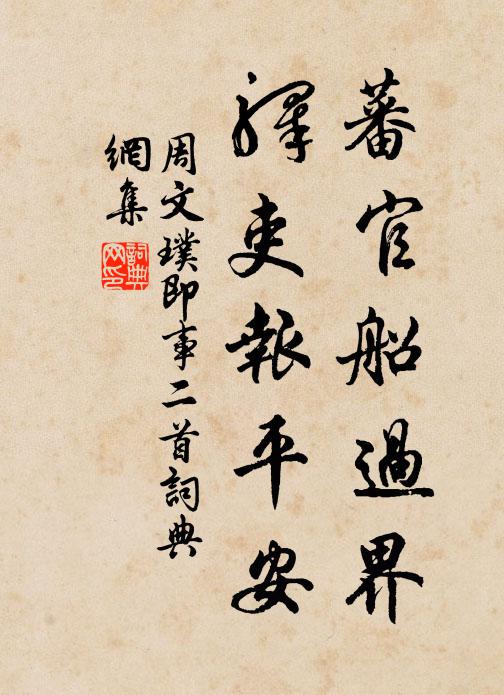 蕃官船過界
驛吏報平安
周文璞即事二首詞典
網集
詞典網印